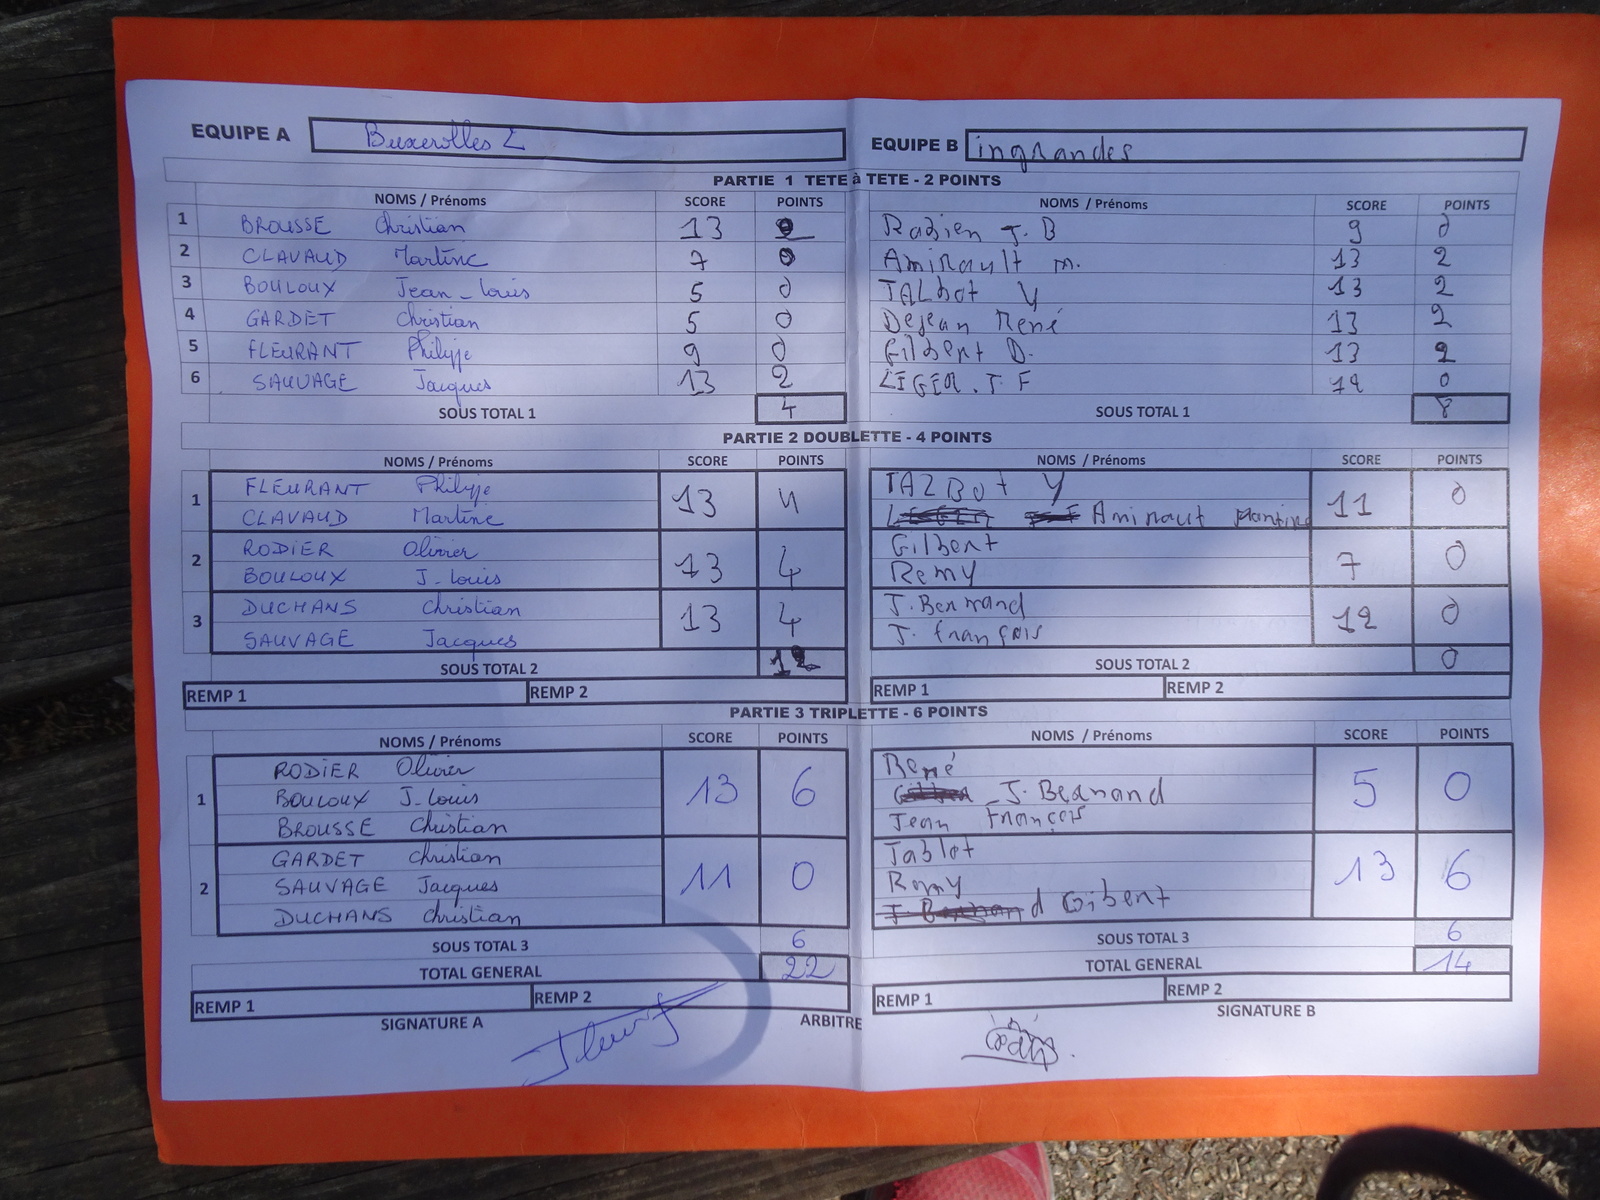 EQUIPE A Buxerolles 2 EQUIPE B ingrandes
PARTIE 1 TETE à TETE - 2 POINTS
NOMS / Prénoms SCORE POINTS NOMS / Prénoms SCORE POINTS
1 BROUSSE Christian 13 2 Rabien J. B 9 0
2 CLAVAUD Martine 7 0 Aminault m. 13 2
3 BOULOUX Jean-Louis 5 0 TALbot Y 13 2
4 GARDET Christian 5 0 Dejean René 13 2
5 FLEURANT Philippe 9 0 Gilbert D. 13 2
6 SAUVAGE Jacques 13 2 LEGER. J F 12 0
SOUS TOTAL 1 4 SOUS TOTAL 1 8
PARTIE 2 DOUBLETTE - 4 POINTS
NOMS / Prénoms SCORE POINTS NOMS / Prénoms SCORE POINTS
1 FLEURANT Philippe 13 4 TALBot Y 11 0
CLAVAUD Martine Aminaut Martine
2 RODIER Olivier 13 4 Gilbert 7 0
BOULOUX J-Louis Remy
3 DUCHANS Christian 13 4 J. Bertrand 12 0
SAUVAGE Jacques J. françois
SOUS TOTAL 2 12 SOUS TOTAL 2 0
REMP 1 REMP 2 REMP 1 REMP 2
PARTIE 3 TRIPLETTE - 6 POINTS
NOMS / Prénoms SCORE POINTS NOMS / Prénoms SCORE POINTS
1 RODIER Olivier 13 6 René 5 0
BOULOUX J-Louis J. Bernand
BROUSSE Christian Jean François
2 GARDET Christian 11 0 Tablot 13 6
SAUVAGE Jacques Remy
DUCHANS Christian Gibert
SOUS TOTAL 3 6 SOUS TOTAL 3 6
TOTAL GENERAL 22 TOTAL GENERAL 14
REMP 1 REMP 2 REMP 1 REMP 2
SIGNATURE A ARBITRE SIGNATURE B